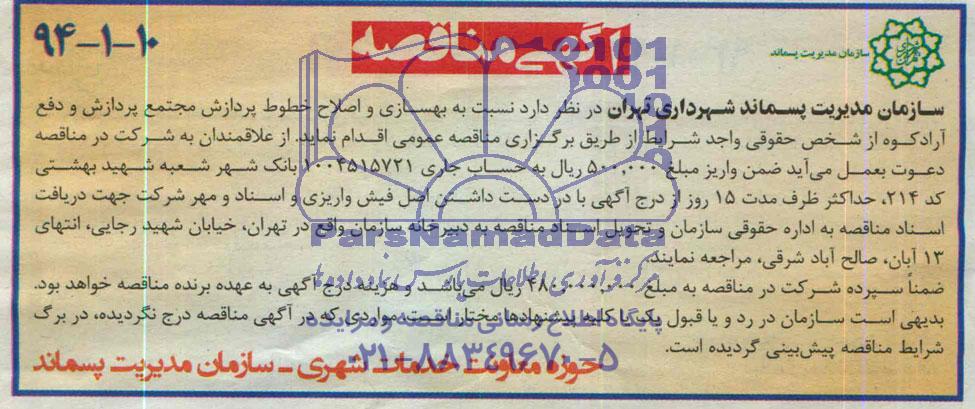 ۹۴-۱-۱۰
آگهی مناقصه
سازمان مدیریت پسماند
سازمان مدیریت پسماند شهرداری تهران در نظر دارد نسبت به بهسازی و اصلاح خطوط پردازش مجتمع پردازش و دفع
آرادکوه از شخص حقوقی واجد شرایط از طریق برگزاری مناقصه عمومی اقدام نماید. از علاقمندان به شرکت در مناقصه
دعوت بعمل می‌آید ضمن واریز مبلغ ۵۰۰,۰۰۰ ریال به حساب جاری ۱۰۰۴۵۱۵۷۲۱ بانک شهر شعبه شهید بهشتی
کد ۲۱۴، حداکثر ظرف مدت ۱۵ روز از درج آگهی با در دست داشتن اصل فیش واریزی و اسناد و مهر شرکت جهت دریافت
اسناد مناقصه به اداره حقوقی سازمان و تحویل اسناد مناقصه به دبیرخانه سازمان واقع در تهران، خیابان شهید رجایی، انتهای
۱۳ آبان، صالح آباد شرقی، مراجعه نمایند.
ضمناً سپرده شرکت در مناقصه به مبلغ ریال می‌باشد و هزینه درج آگهی به عهده برنده مناقصه خواهد بود.
بدیهی است سازمان در رد و یا قبول یک یا کلیه پیشنهادها مختار است. مواردی که در آگهی مناقصه درج نگردیده، در برگ
شرایط مناقصه پیش‌بینی گردیده است.
حوزه معاونت خدمات شهری - سازمان مدیریت پسماند
ParsNamadData
مرکز فرآوری اطلاعات پارس نماد داده‌ها
پایگاه اطلاع رسانی مناقصه و مزایده
۰۲۱-۸۸۳۴۹۶۷۰-۵